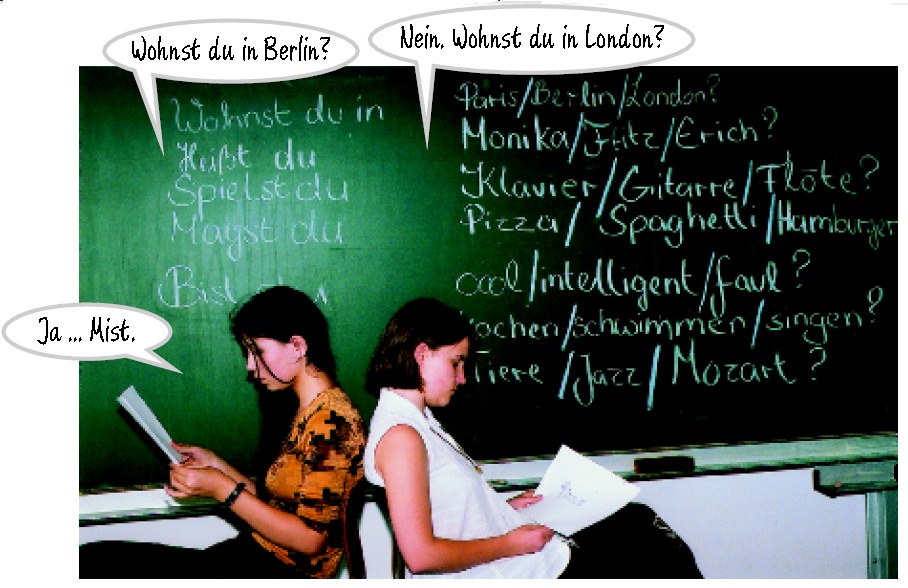 Wohnst du in Berlin?
Nein. Wohnst du in London?
Ja ... Mist.
Wohnst du in
Heißt du
Spielst du
Magst du
Bist
Paris/Berlin/London?
Monika/Fritz/Erich?
Klavier/Gitarre/Flöte?
Pizza/Spaghetti/Hamburger
cool/intelligent/faul?
kochen/schwimmen/singen?
Tiere/Jazz/Mozart?